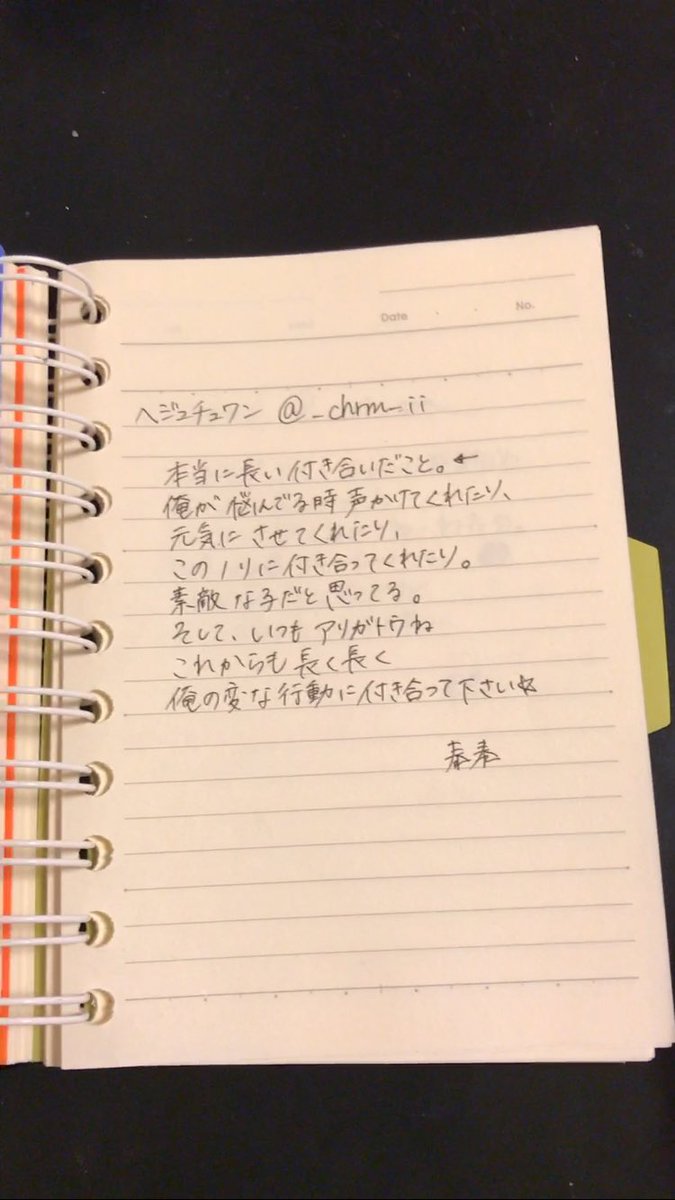 Date No.
ヘジュチュワン @_chrm_ii
本当に長い付き合いだこと。←
俺が悩んでる時声かけてくれたり、
元気にさせてくれたり、
このノリに付き合ってくれたり。
素敵な子だと思ってる。
そして、いつもアリガトウね
これからも長く長く
俺の変な行動に付き合って下さい☆